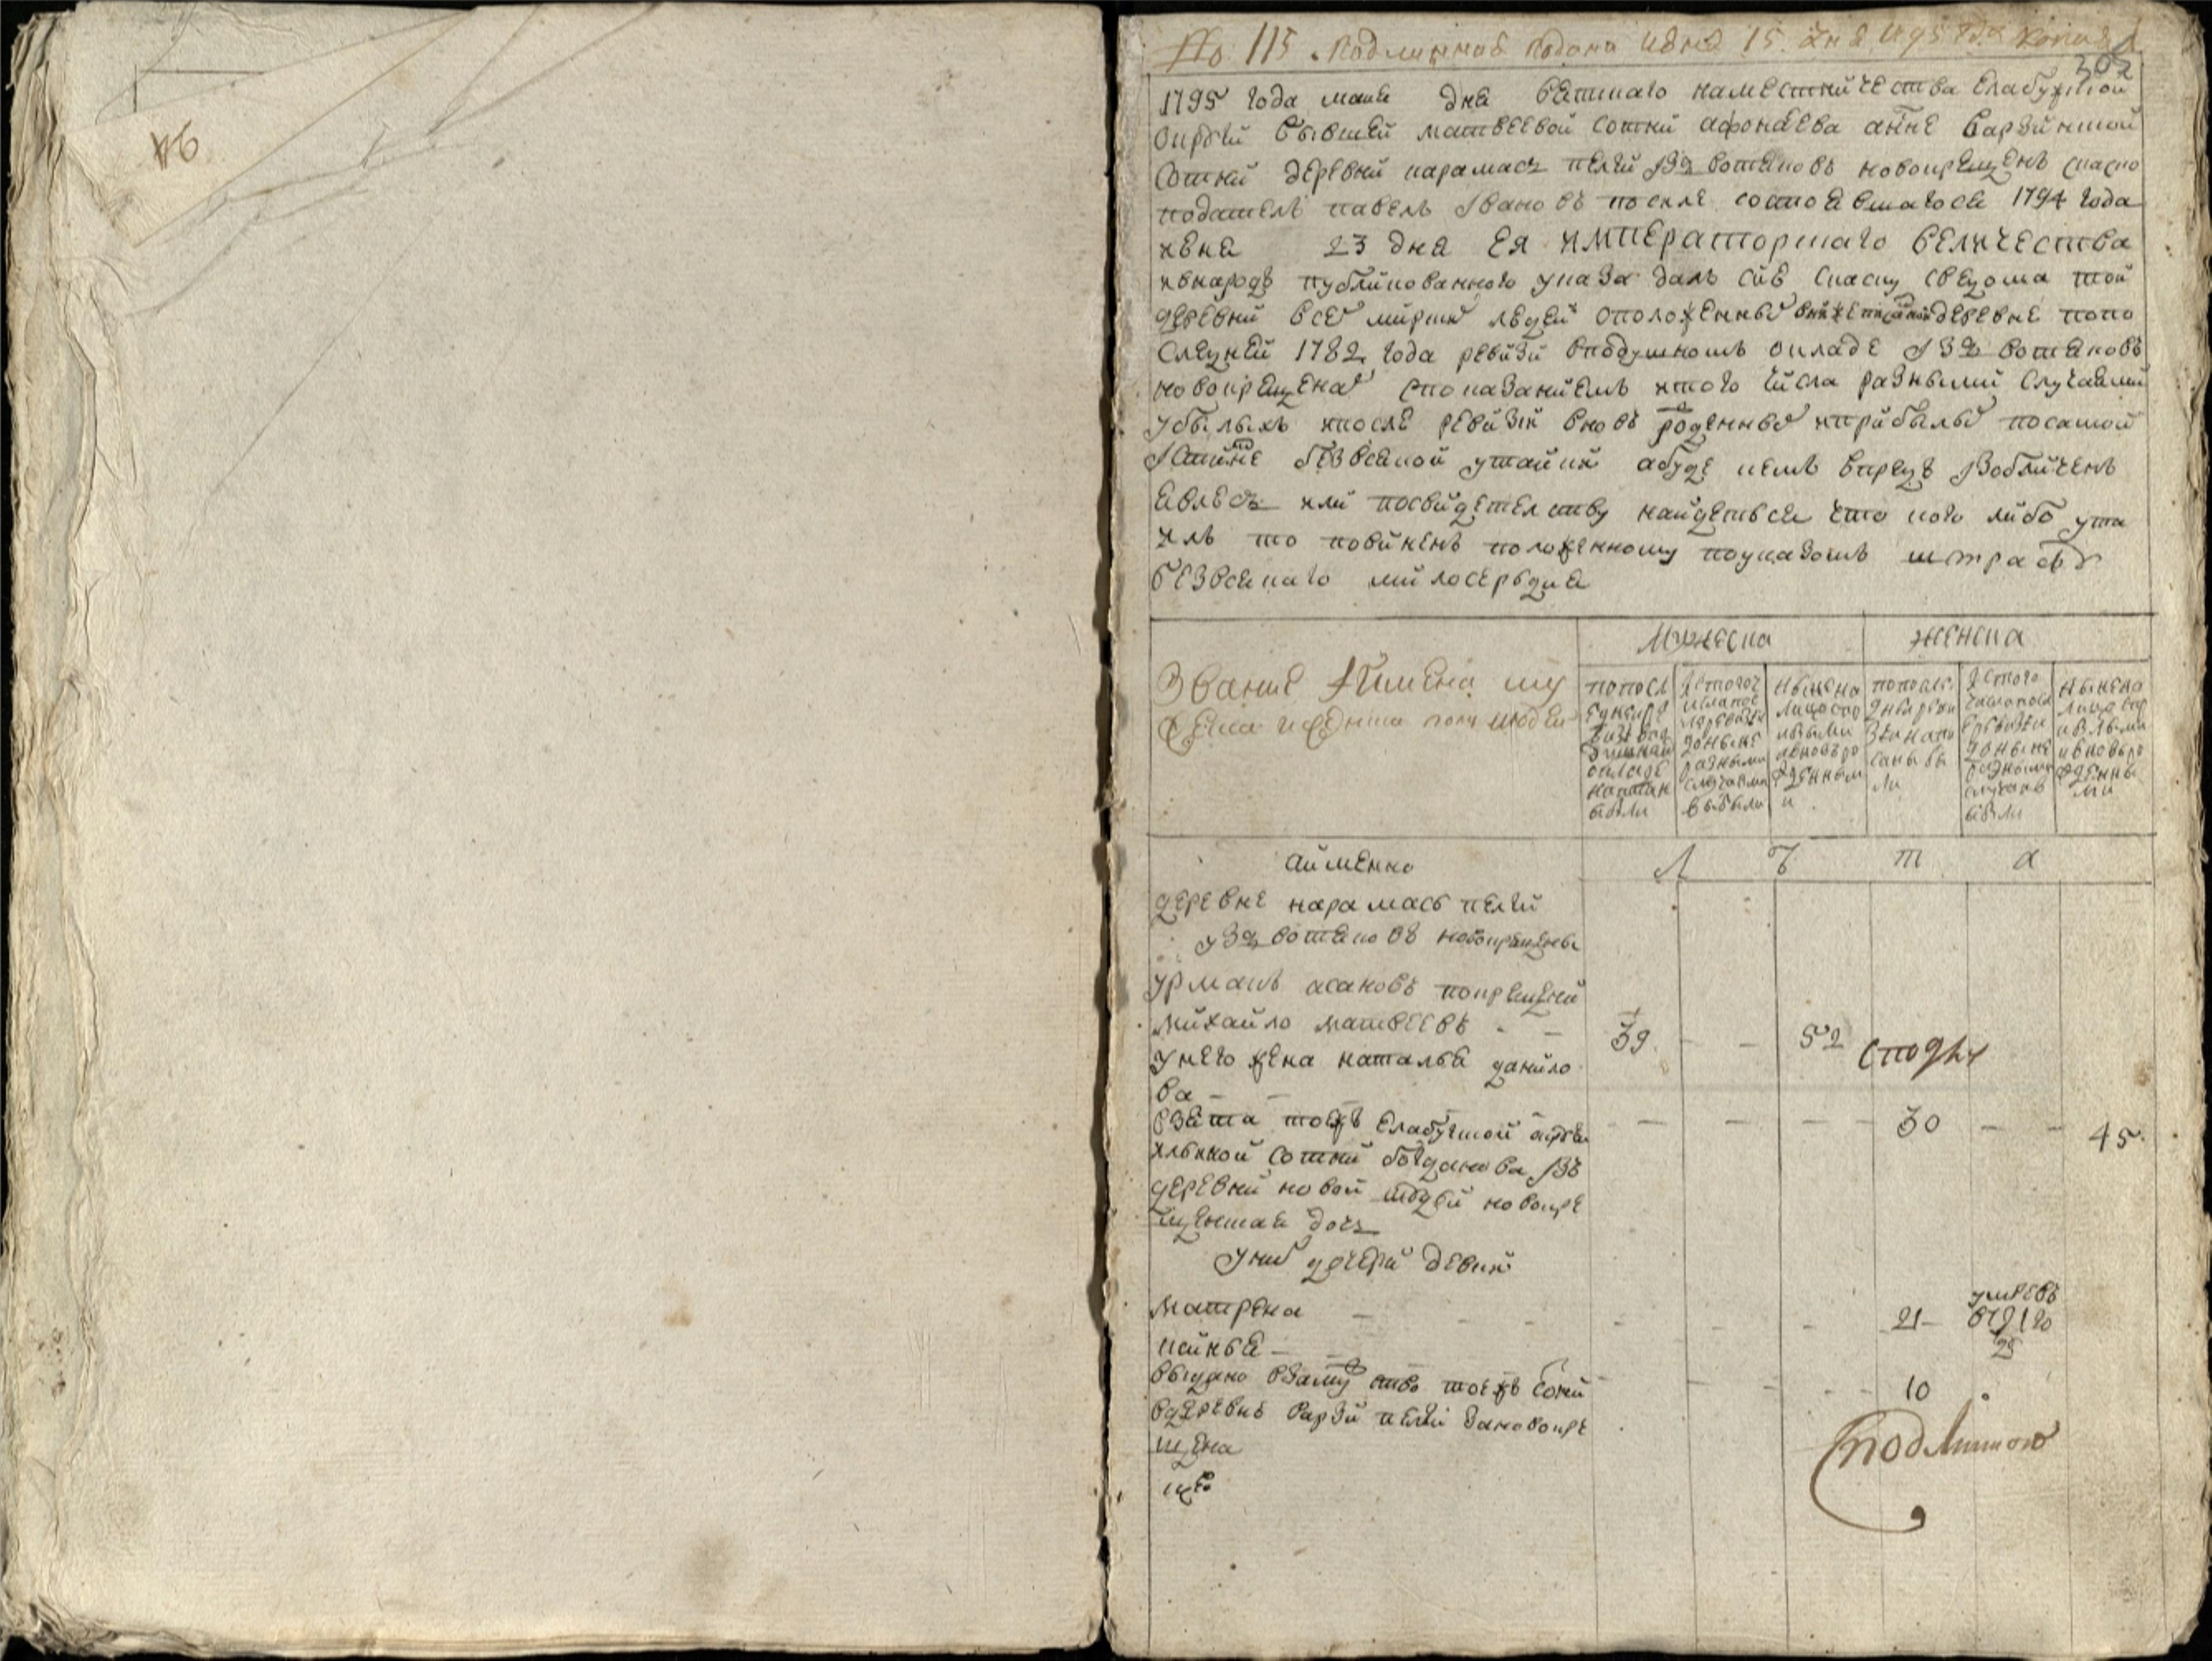 № 115 Подлинная подана июня 15. дня 1795 года копия
302
1795 года маия дня вятского наместничества Елабужской
округи бывшей матвеевой сотни афонаева а ныне варзинской
сотни деревни карамас пелги из вотяков новокрещен
податель павел Иванов после состоявшагося 1794 года
июня 23 дня Ея императорского величества
и в народ публикованного указа дал сию скаску с ведома той
деревни всех мирских людей о положенных в деревне по по
следней 1782 года ревизии в подушном окладе из вотяков
новокрещенах с показанием из того числа разными случаями
убылых и после ревизии вновь рожденных и прибылых по самой
Истинне без всякой утайки а буде кем впредь изобличен
явлюсь или по свидетельству найдется что кого либо ута
ил то повинен положенному по указом штрафу
без всякаго милосердия
Звание и имена му
жеска и женска полу людей
мужеска
женска
по посл
едней ре
визии в по
душном
окладе
написан
были
ис того ч
исла по
ревизии
до ныне
разными
случаями
выбыли
ныне на
лицо с пр
ибылыми
и вновь ро
жденными
по посл
дней реви
зии напи
саны бы
ли
ис того
числа посл
е ревизии
до ныне
разными
случаями
были
ныне на
лицо с пр
ибылыми
и вновь ро
жденны
ми
а имянно
Л ѣ т а
деревне карамас пелги
из вотяков новокрещены
урман асанов по крещении
михайло матвеев - - 39 - - 52
у него жена наталья данило
ва - - - - - 30 - - 45
взята тоеж Елабужской округи
ильиной сотни богданова из
деревни новой новокре
щенская дочь
у них дочери девки
матрена - - - - - - 21
умре в 1792 го
25
канья - - - - - 10
выдана в замужство тоеж сотни
в деревне варзи пелги за новокре
щена
С подлинною